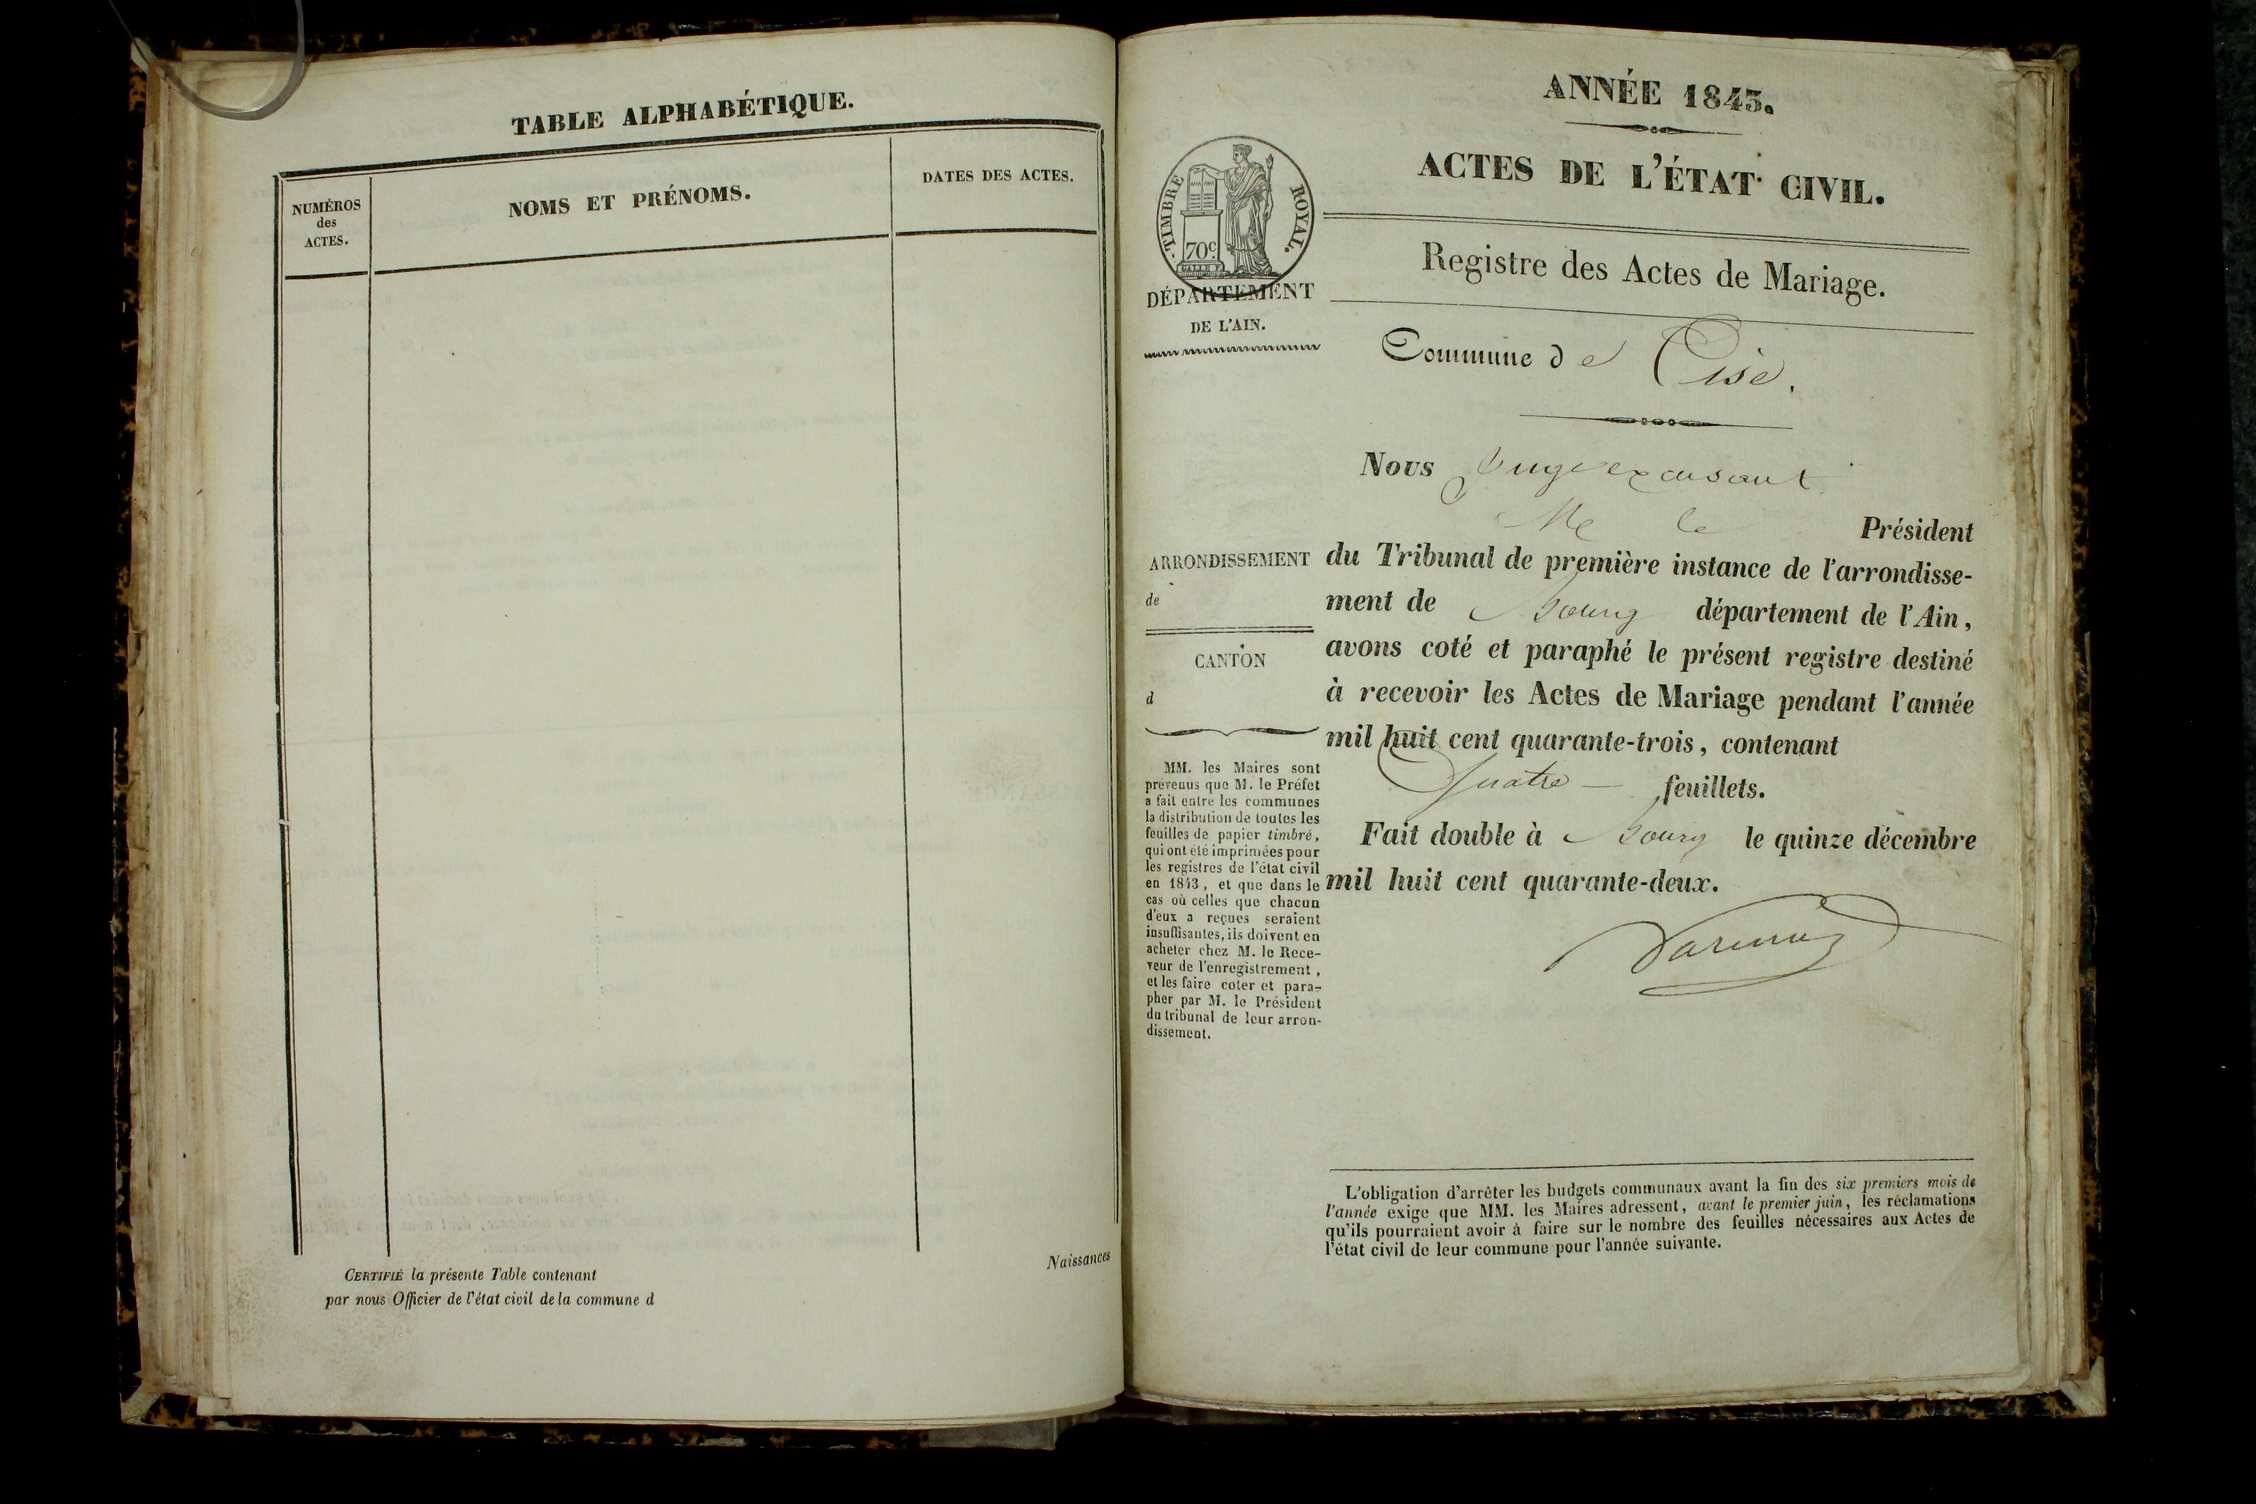 TABLE ALPHABÉTIQUE.
NUMÉROS
des
ACTES.
NOMS ET PRÉNOMS.
DATES DES ACTES.
CERTIFIÉ la présente Table contenant
par nous Officier de l'état civil de la commune d
Naissances
ANNÉE 1843.
ACTES DE L'ÉTAT CIVIL.
Registre des Actes de Mariage.
TIMBRE ROYAL.
70c.
DÉPARTEMENT
DE L'AIN.
Commune de Cise.
Nous Juge
Me le Président
ARRONDISSEMENT
de
CANTON
d
du Tribunal de première instance de l'arrondisse-
ment de Bourg département de l'Ain,
avons coté et paraphé le présent registre destiné
à recevoir les Actes de Mariage pendant l'année
mil huit cent quarante-trois, contenant
Quatre — feuillets.
Fait double à Bourg le quinze décembre
mil huit cent quarante-deux.
MM. les Maires sont
prévenus que M. le Préfet
a fait entre les communes
la distribution de toutes les
feuilles de papier timbré,
qui ont été imprimées pour
les registres de l'état civil
en 1843, et que dans le
cas où celles que chacun
d'eux a reçues seraient
insuffisantes, ils doivent en
acheter chez M. le Rece-
veur de l'enregistrement,
et les faire coter et para-
pher par M. le Président
du tribunal de leur arron-
dissement.
L'obligation d'arrêter les budgets communaux avant la fin des six premiers mois de
l'année exige que MM. les Maires adressent, avant le premier juin, les réclamations
qu'ils pourraient avoir à faire sur le nombre des feuilles nécessaires aux Actes de
l'état civil de leur commune pour l'année suivante.